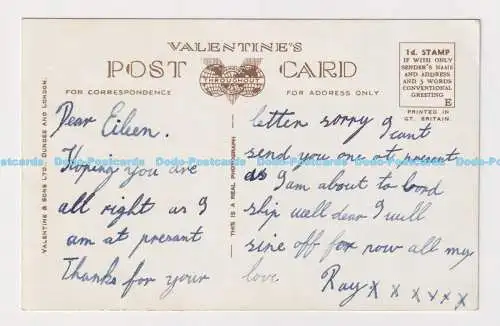 VALENTINE'S
POST CARD
THROUGHOUT
FOR CORRESPONDENCE
FOR ADDRESS ONLY
1d. STAMP
IF WITH ONLY
SENDER'S NAME
AND ADDRESS
AND 5 WORDS
CONVENTIONAL
GREETING
E
PRINTED IN
GT. BRITAIN
VALENTINE & SONS LTD. DUNDEE AND LONDON.
THIS IS A REAL PHOTOGRAPH
Dear Eileen.
Hoping you are
all right as I
am at presant
Thanks for your
letter sorry I cant
send you one at present
as I am about to bord
ship well dear I will
sine off for now all my
love.
Ray x x x x x x
Dodo-Postcards Dodo-Postcards Dodo-Postcards Dodo-Postcards